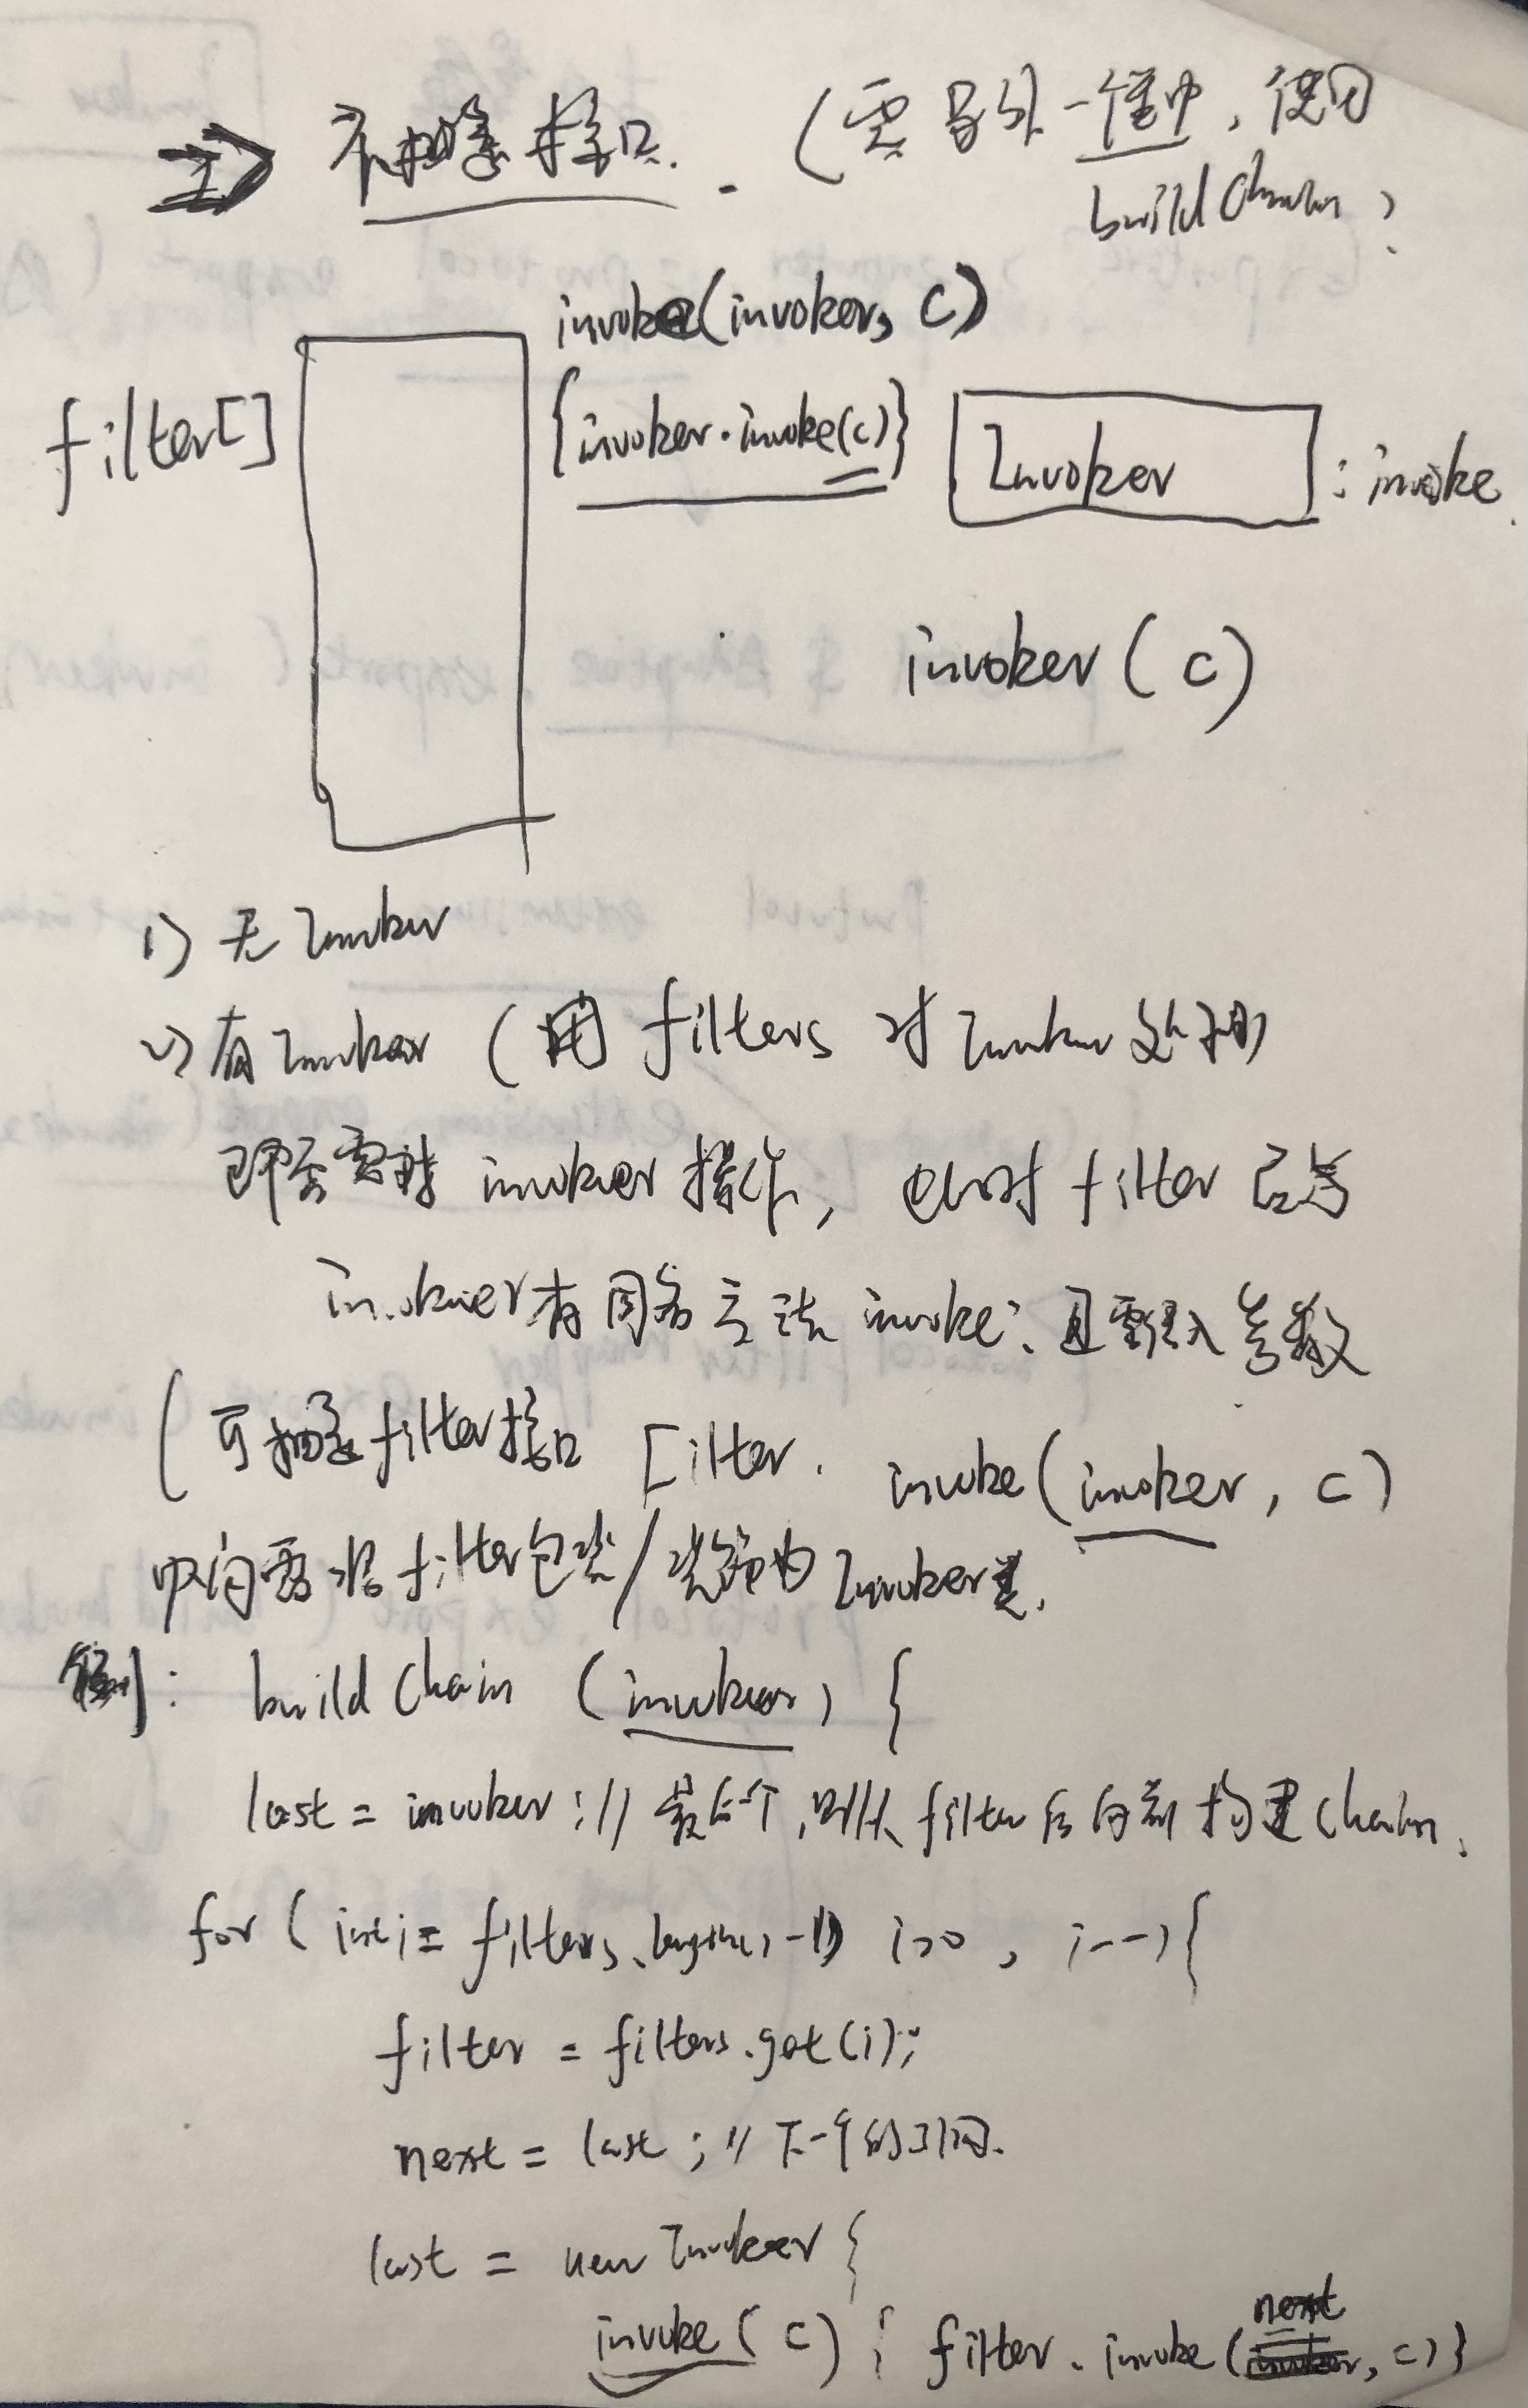 => 不抽象接口. (要另外一种, 使用
build Chain)
invoke(invoker, C)
filter[] {invoker.invoke(c)} Invoker : invoke
invoker (c)
1) 无 Invoker
2) 有 Invoker (用 filters 对 Invoker 处理)
invoker 操作, 此时 filter
invoker 有同名方法 invoke, 且需 入参数
(可抽象 filter 接口 Filter. invoke(invoker, c)
中间需将 filter 包装/装饰为 Invoker 类.
例: build Chain (invoker) {
last = invoker; // 最后一个, 则从 filter 后向前构建 Chain.
for (int i = filters.length()-1; i>0, i--){
filter = filters.get(i);
next = last; // 下一个的引用.
last = new Invoker {
invoke(c) { filter.invoke(next, c)}